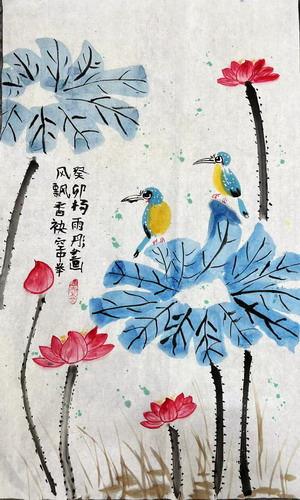 癸卯杨雨彤畫
风飘香袂空中举